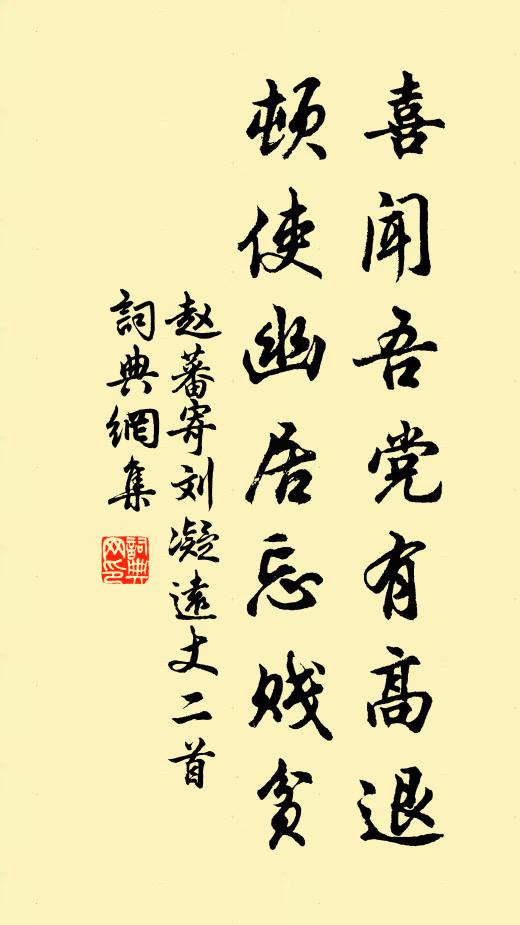 喜闻吾党有高退
顿使幽居忘贱贫
赵蕃寄刘凝远丈二首
詞典網集
詞典网印